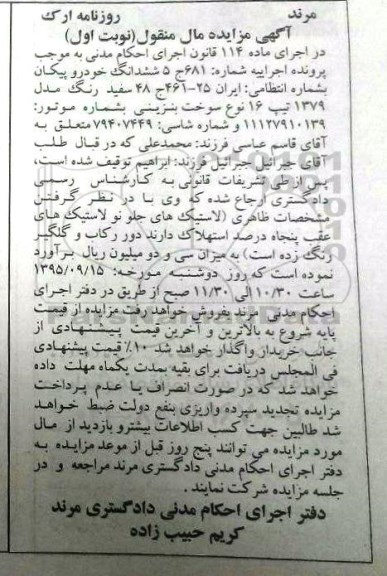 مرند روزنامه ارک
آگهی مزایده مال منقول(نوبت اول)
در اجرای ماده ۱۱۴ قانون اجرای احکام مدنی به موجب
پرونده اجراییه شماره: ۶۸۱ج ۵ ششدانگ خودرو پیکان
بشماره انتظامی: ایران ۲۵-۴۶۱ج ۴۸ سفید رنگ مدل
۱۳۷۹ تیپ ۱۶ نوع سوخت بنزینی بشماره موتور:
۱۱۱۲۷۹۱۰۱۳۹ و شماره شاسی: ۷۹۴۰۷۴۴۹ متعلق به
آقای قاسم عباسی فرزند: محمدعلی که در قبال طلب
آقای جبرائیل جبرائیل فرزند: ابراهیم توقیف شده است،
پس از طی تشریفات قانونی به کارشناس رسمی
دادگستری ارجاع شده که وی با در نظر گرفتن
مشخصات ظاهری (لاستیک های جلو نو لاستیک های
عقب پنجاه درصد استهلاک دارند دور رکاب و گلگیر
رنگ زده است) به میزان سی و دو میلیون ریال برآورد
نموده است که روز دوشنبه مورخه: ۱۳۹۵/۰۹/۱۵
ساعت ۱۰/۳۰ الی ۱۱/۳۰ صبح از طریق در دفتر اجرای
احکام مدنی مرند بفروش خواهد رفت مزایده از قیمت
پایه شروع به بالاترین و آخرین قیمت پیشنهادی از
جانب خریدار واگذار خواهد شد ۱۰٪ قیمت پیشنهادی
فی المجلس دریافت برای بقیه بمدت یکماه مهلت داده
خواهد شد که در صورت انصراف یا عدم پرداخت
مزایده تجدید سپرده واریزی بنفع دولت ضبط خواهد
شد طالبین جهت کسب اطلاعات بیشترو بازدید از مال
مورد مزایده می توانند پنج روز قبل از موعد مزایده به
دفتر اجرای احکام مدنی دادگستری مرند مراجعه و در
جلسه مزایده شرکت نمایند .
دفتر اجرای احکام مدنی دادگستری مرند
کریم حبیب زاده